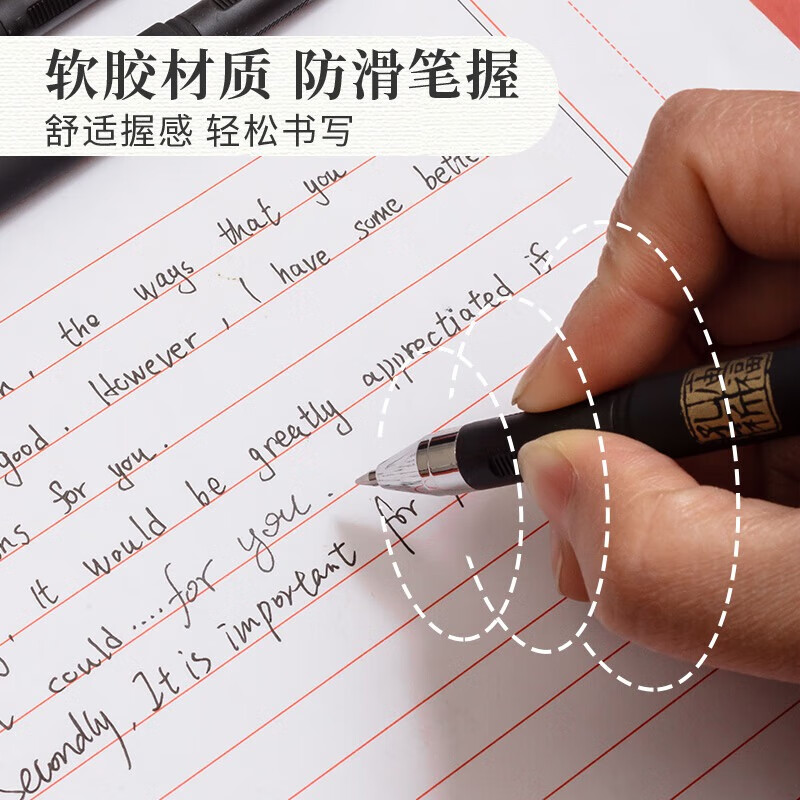 软胶材质 防滑笔握
舒适握感 轻松书写
, the ways that you
good. However, I have some
for you.
, it would be greatly apprectiated if
could ....for you.
Secondly, It is important for
孔庙祈福